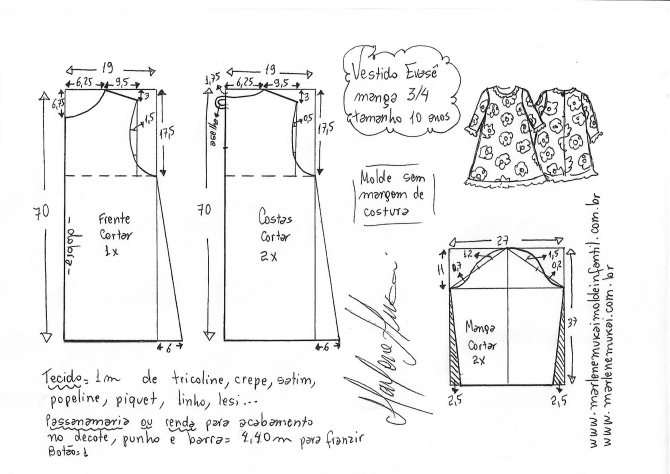 19
6,25
9,5
3
6,75
1,5
17,5
70
Frente
Cortar
1x
-dobra-
6
19
1,75
6,25
9,5
3
0,5
17,5
abelha
70
Costas
Cortar
2x
6
Vestido Evasê
manga 3/4
tamanho 10 anos
Molde sem
margem de
costura
27
11
1,2
1,5
0,7
0,2
37
Manga
Cortar
2x
2,5
2,5
Marlene Mukai
www.marlenemukaimoldeinfantil.com.br
www.marlenemukai.com.br
Tecido= 1m de tricoline, crepe, satim,
popeline, piquet, linho, lesi...
Passanamaria ou renda para acabamento
no decote, punho e barra= 4,40m para franzir
Botão=1